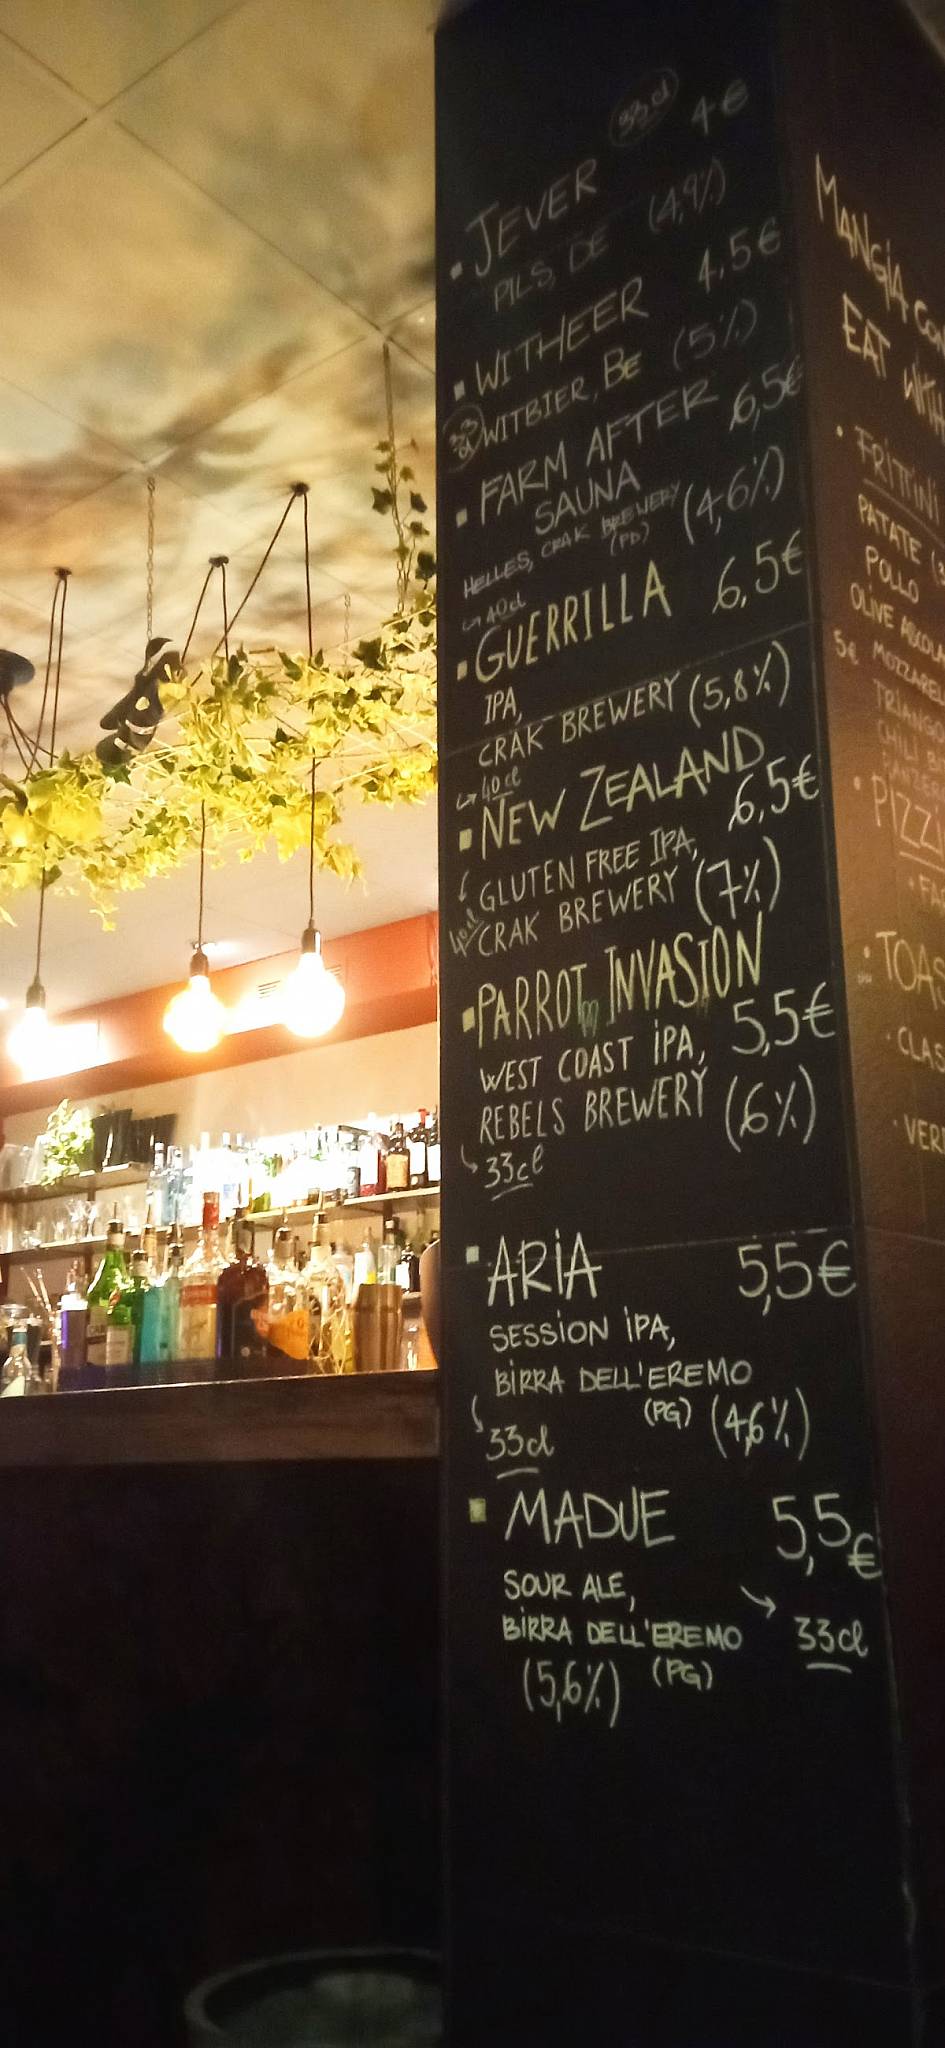 33 cl 4€
JEVER
PILS, DE (4,9%)
WITHEER 4,5€
WITBIER, BE (5%)
33 cl
FARM AFTER 6,5€
SAUNA
HELLES, CRAK BREWERY (4,6%)
(PD)
→40cl
GUERRILLA 6,5€
IPA,
CRAK BREWERY (5,8%)
→40cl
NEW ZEALAND
6,5€
GLUTEN FREE IPA,
CRAK BREWERY (7%)
40cl
PARROT INVASION
WEST COAST IPA, 5,5€
REBELS BREWERY (6%)
→33cl
ARIA 5,5€
SESSION IPA,
BIRRA DELL'EREMO
(PG) (4,6%)
→33cl
MADUE 5,5€
SOUR ALE,
BIRRA DELL'EREMO → 33cl
(5,6%) (PG)
MANGIA CON
EAT WITH
FRITTINI
PATATE
POLLO
OLIVE ASCOLA
5€ MOZZARE
TRIANGO
CHILI
PANZER
PIZZ
FA
TOAS
CLAS
VER